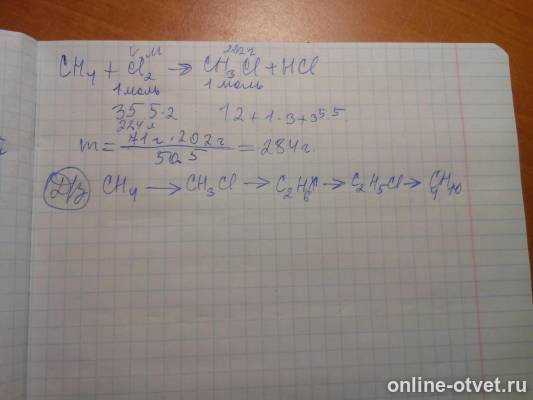 V, M 202г
CH₄ + Cl₂ → CH₃Cl + HCl
1 моль 1 моль
35 5·2 12 + 1·3 + 35.5
22,4 л
m = 71г · 202г / 50,5 = 284г
Д/з CH₄ → CH₃Cl → C₂H₆ → C₂H₅Cl → C₄H₁₀
online-otvet.ru